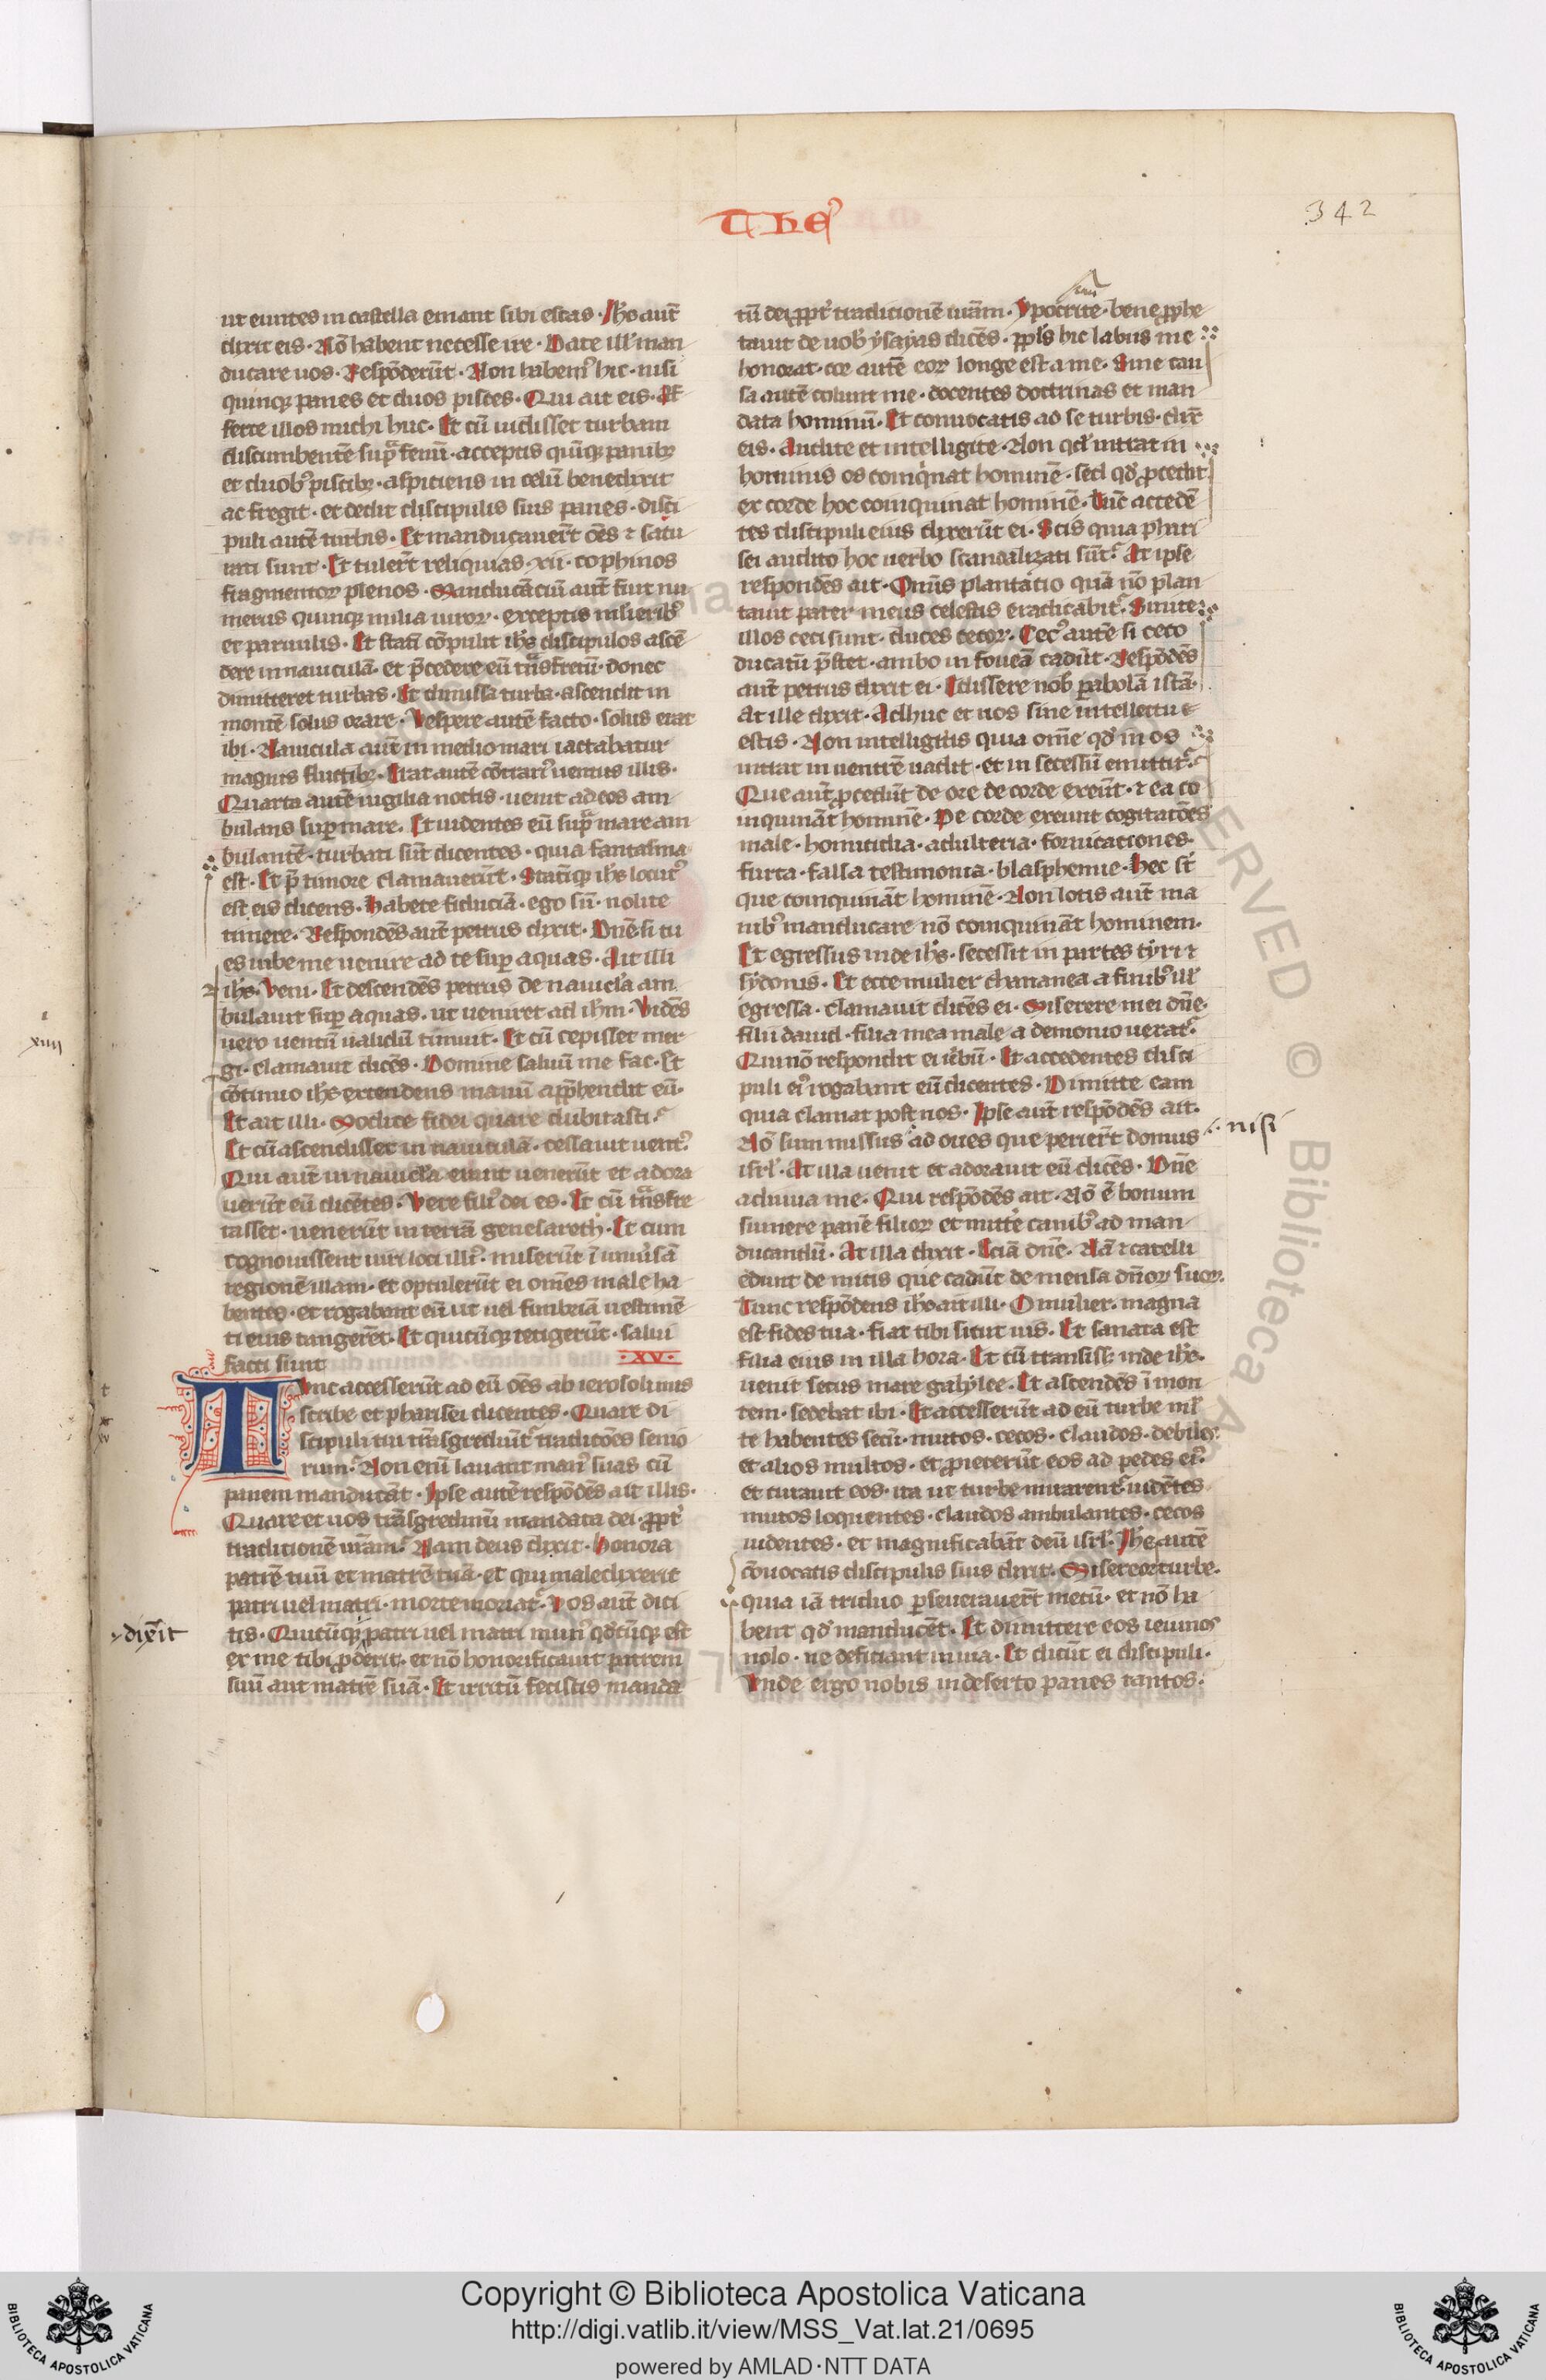 Theꝰ
342
ut euntes in castella emant sibi escas · Ih̄s aut̄
dixit eis · Nō habent necesse ire · Date ill' man
ducare uos · Respōderūt · Non habem' hic · nisi
quinqꝫ panes et duos pisces · Qui ait eis · Af
ferte illos michi huc · Et cū uidisset turbam
discumbentē sup̄ fenū · acceptis quīqꝫ panibꝫ
et duobꝰ piscibꝫ · aspiciens in celū benedixit
ac fregit · et dedit discipulis suis panes · disci
puli autē turbis · Et manducauer̄t oēs ⁊ satu
rati sunt · Et tuler̄t reliquias · xii · cophinos
fragmentoꝝ plenos · Manducāciū aut̄ fuit nu
merus quinqꝫ milia uiroꝝ · exceptis mulieribꝰ
et paruulis · Et statī cōpulit ih̄s discipulos ascē
dere in nauiculā · et p̄cedere eū trāsfretū · donec
dimitteret turbas · Et dimissa turba · ascendit in
montē solus orare · Vespere autē facto · solus erat
ibi · Nauicula aut̄ in medio mari iactabatur
magnis fluctibꝫ · Erat autē cōtrariꝰ uentus illis ·
Quarta autē uigilia noctis · uenit ad eos am
bulans suꝑ mare · Et uidentes eū sup̄ mare am
bulantē · turbati sūt dicentes · quia fantasma
est · Et p̄ timore clamauerūt · Statīqꝫ ih̄s locutꝰ
est eis dicens · Habete fiduciā · ego sū · nolite
timere · Respondēs aut̄ petrus dixit · Dn̄e si tu
es iube me uenire ad te suꝑ aquas · Ait illi
ih̄s · Veni · Et descendēs petrus de nauicl'a am
bulauit suꝑ aquas · ut ueniret ad ih̄m · Vidēs
uero uentū ualidū timuit · Et cū cepisset mer
gi · clamauit dicēs · Domine saluū me fac · Et
cōtinuo ih̄s extendens manū apꝑhendit eū ·
Et ait illi · Modice fidei quare dubitasti ·
Et cū ascendisset in nauiculā · cessauit uentꝰ
Qui aut̄ in nauicl'a erant uenerūt et adora
uerūt eū dicētes · Vere filiꝰ dei es · Et cū trāsfre
tasset · uenerūt in terrā genesareth · Et cum
cognouissent uiri loci illiꝰ · miserūt ī uniūsā
regionē illam · et optulerūt ei om̄es male ha
bentes · et rogabant eū ut uel fimbriā uestimē
ti eius tangerēt · Et quicūqꝫ tetigerūt · salui
facti sunt · XV ·
Tunc accesserūt ad eū oēs ab ierosolimis
scribe et pharisei dicentes · Quare di
scipuli tui trāsgrediūt traditōes senio
rum · Non enī lauant manꝰ suas cū
panem manducāt · Ipse autē respōdēs ait illis ·
Quare et uos trāsgredimī mandata dei · ꝓpt'
traditionē ur̄am · Nam deus dixit · Honora
patrē tuū et matrē tuā · et qui maledixerit
patri uel matri · morte moriat̄ · Vos aut̄ dici
tis · Quicūqꝫ patri uel matri munꝰ qd'cūqꝫ est
ex me tibi ꝓderit · et nō honorificauit patrem
suū aut matrē suā · Et irritū fecistis manda
dixit
tū dei ꝓpt' traditionē ur̄am · Ypocrite · bene ꝓphe
tauit de uob' ysayas dicēs · ppl's hic labiis me
honorat · cor autē eoꝝ longe est a me · Sine cau
sa autē colunt me · docentes doctrinas et man
data hominū · Et conuocatis ad se turbis · dix̄
eis · Audite et intelligite · Non qd' intrat in
hominis os coinq'nat hominē · sed qd' ꝓcedit
ex corde hoc coinquinat hominē · Tūc accedē
tes discipuli eius dixerūt ei · Scis quia phari
sei audito hoc uerbo scandalizati sūt · At ipse
respondēs ait · Om̄is plantatio quā nō plan
tauit pater meus celestis eradicabit̄ · Sinite
illos ceci sunt · duces cecoꝝ · Cecꝰ autē si ceco
ducatū p̄stet · ambo in foueā cadūt · Respōdēs
aut̄ petrus dixit ei · Edissere nob' ꝑabolā istā ·
At ille dixit · Adhuc et uos sine intellectu
estis · Non intelligitis quia om̄e qd' in os
intrat in uentrē uadit · et in secessū emittit̄
Que aut̄ ꝓcedūt de ore de corde exeūt · ⁊ ea co
inquināt hominē · De corde exeunt cogitatōēs
male · homicidia · adulteria · fornicationes ·
furta · falsa testimonia · blasphemie · Hec sūt
que coinquināt hominē · Non lotis aut̄ ma
nibꝰ manducare nō coinquināt hominem ·
Et egressus inde ih̄s · secessit in partes tyri ⁊
sydonis · Et ecce mulier chananea a finibꝰ ill'
egressa · clamauit dicēs ei · Miserere mei dn̄e ·
filii dauid · filia mea male a demonio uexat̄
Qui nō respondit ei ūbū · Et accedentes disci
puli eiꝰ rogabant eū dicentes · Dimitte eam
quia clamat post nos · Ipse aut̄ respōdēs ait ·
Nō sum missus ad oues que perier̄t domus
isrl' · At illa uenit et adorauit eū dicēs · Dn̄e
adiuua me · Qui respōdēs ait · Nō ē bonum
sumere panē filioꝝ et mitte canibꝰ ad man
ducandū · At illa dixit · Eciā dn̄e · Nā ⁊ catelli
edunt de micis que cadūt de mensa dn̄oꝝ suoꝝ ·
Tunc respōdens ih̄s ait illi · O mulier · magna
est fides tua · fiat tibi sicut uis · Et sanata est
filia eius in illa hora · Et cū transiss; inde ih̄s ·
uenit secus mare galylee · Et ascendēs ī mon
tem · sedebat ibi · Et accesserūt ad eū turbe ml'
te habentes secū · mutos · cecos · claudos · debiles ·
et alios multos · et ꝓiecerūt eos ad pedes eiꝰ
et curauit eos · ita ut turbe mirarent̄ uidētes
mutos loquentes · claudos ambulantes · cecos
uidentes · et magnificabāt deū isrl' · Ih̄s autē
cōuocatis discipulis suis dixit · Misereor turbe ·
quia iā triduo ꝑseuerauer̄t mecū · et nō ha
bent qd' manducēt · Et dimittere eos ieiunos
nolo · ne deficiant in uia · Et dicūt ei discipuli ·
Vnde ergo nobis in deserto panes tantos ·
nisi
xiiii
Copyright © Biblioteca Apostolica Vaticana
http://digi.vatlib.it/view/MSS_Vat.lat.21/0695
powered by AMLAD·NTT DATA
BIBLIOTECA APOSTOLICA VATICANA
BIBLIOTECA APOSTOLICA VATICANA